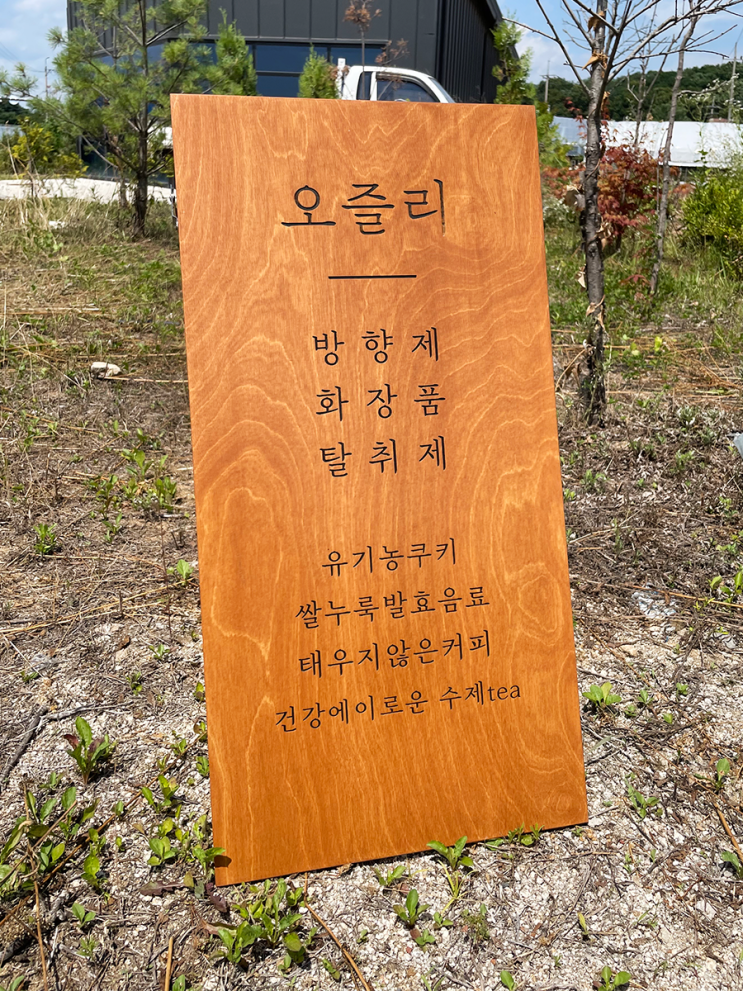 오즐리
방향제
화장품
탈취제
유기농쿠키
쌀누룩발효음료
태우지않은커피
건강에이로운 수제tea